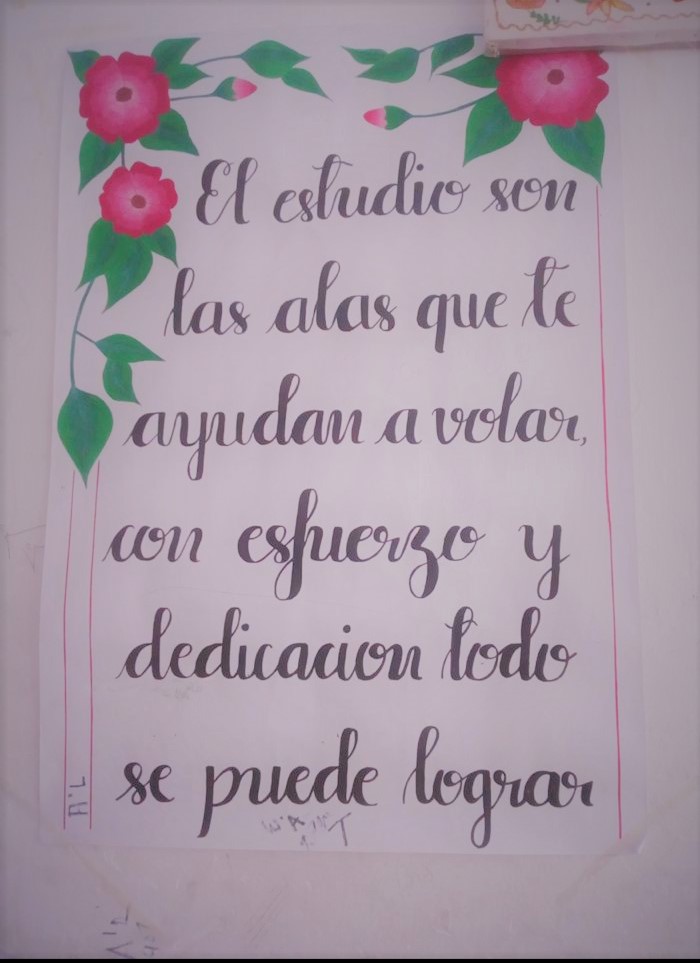 El estudio son
las alas que te
ayudan a volar,
con esfuerzo y
dedicacion todo
se puede lograr
A'L
A'L